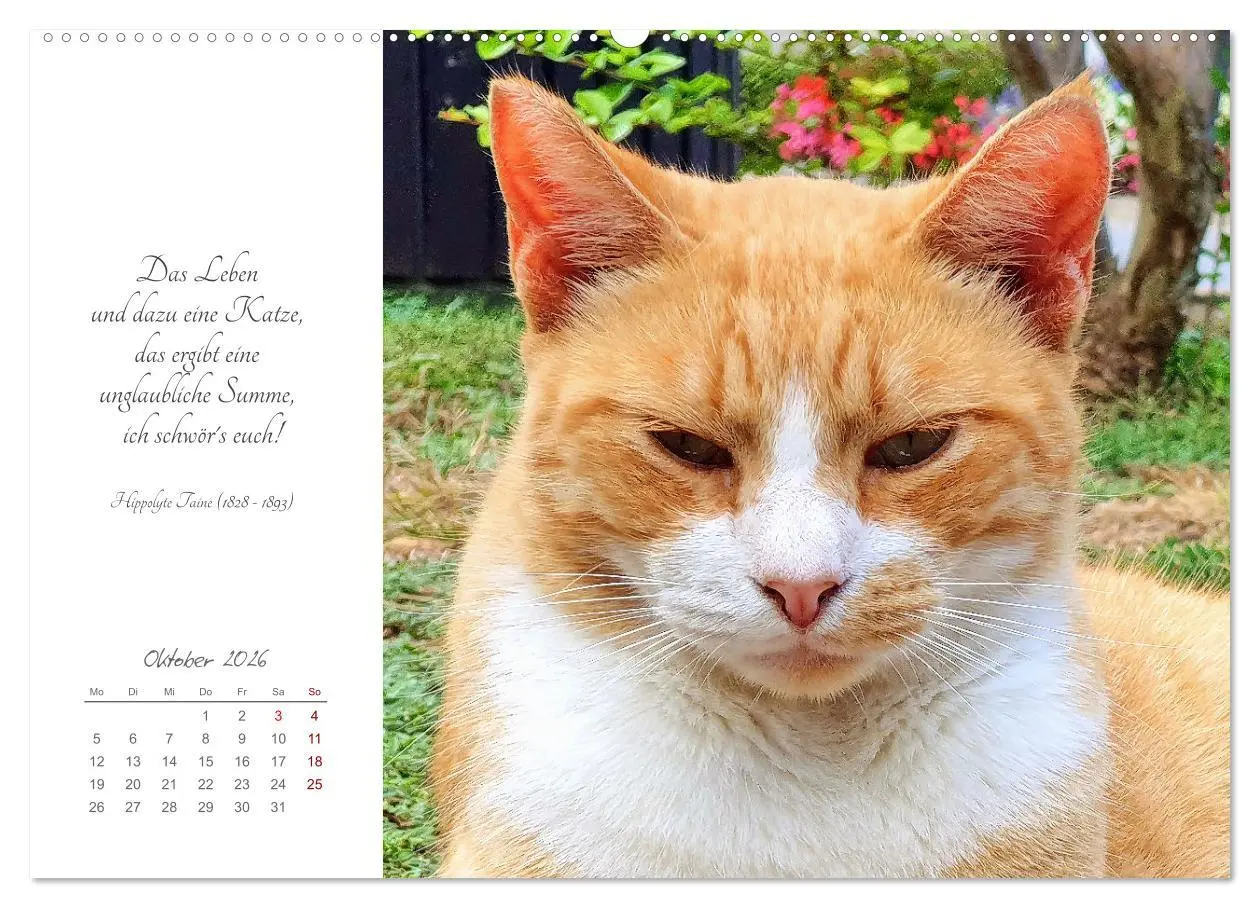 Das Leben
und dazu eine Katze,
das ergibt eine
unglaubliche Summe,
ich schwör's euch!
Hippolyte Taine (1828 - 1893)
Oktober 2026
Mo Di Mi Do Fr Sa So
1 2 3 4
5 6 7 8 9 10 11
12 13 14 15 16 17 18
19 20 21 22 23 24 25
26 27 28 29 30 31